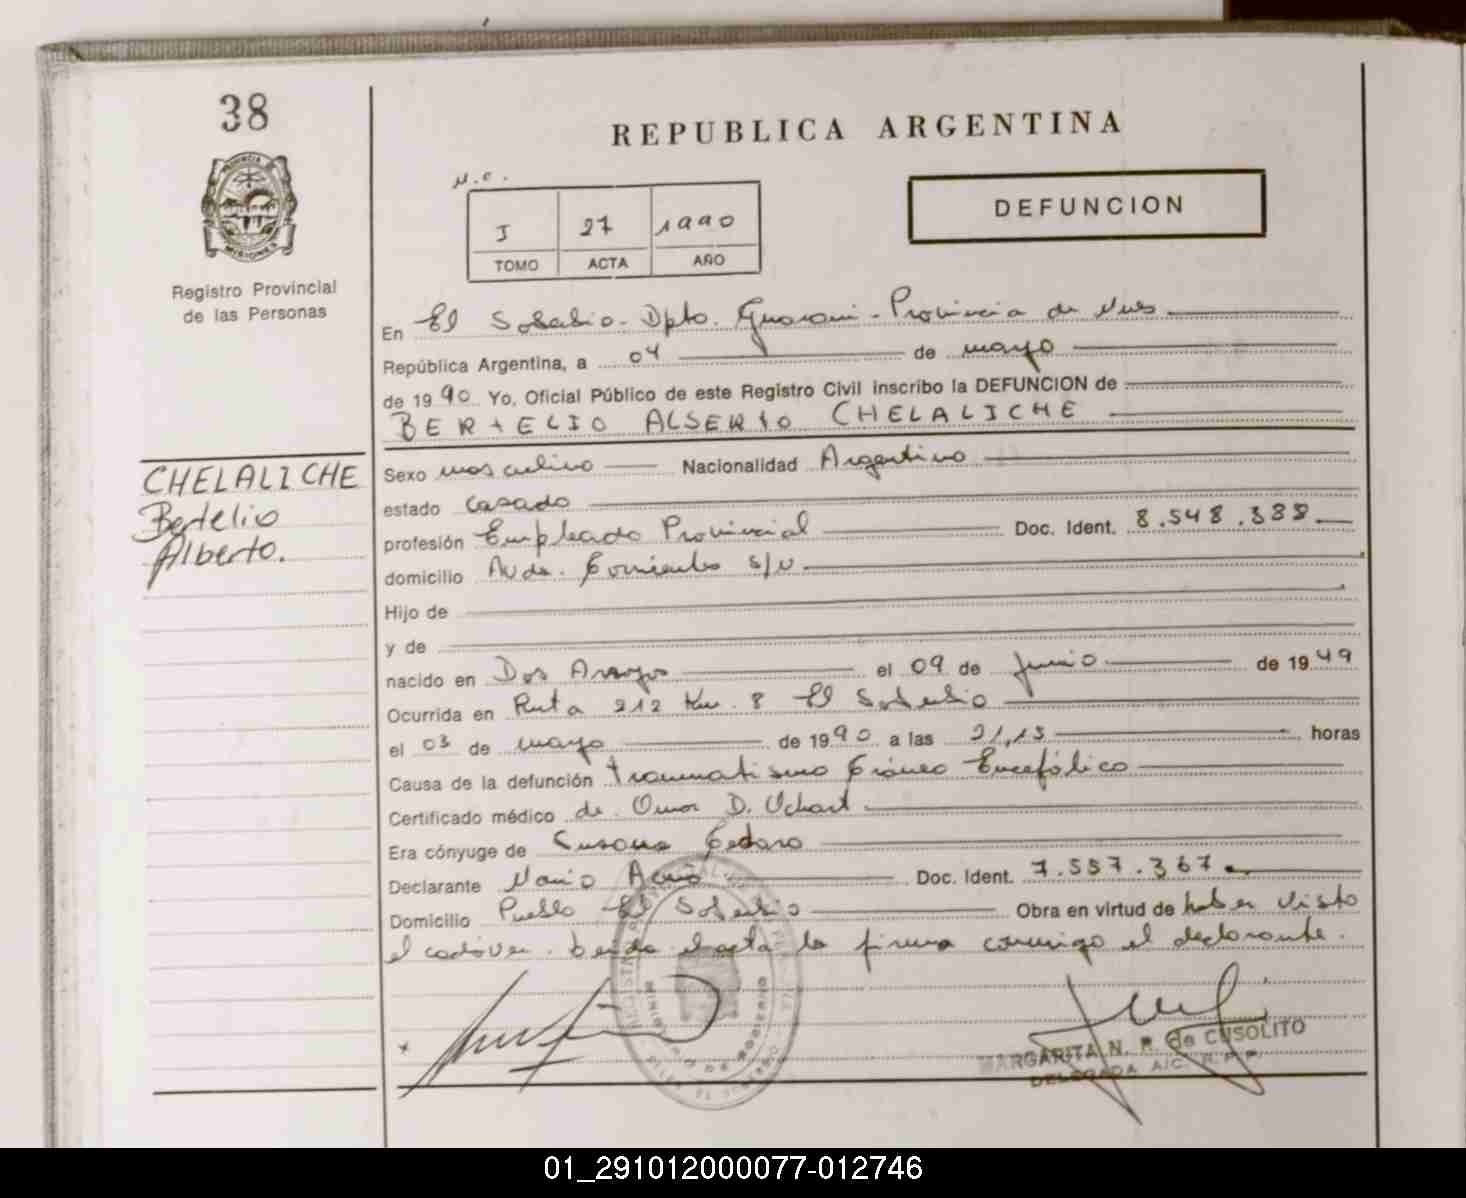 38
REPUBLICA ARGENTINA
DEFUNCION
I 27 1990
TOMO ACTA AÑO
PROVINCIA
MISIONES
Registro Provincial
de las Personas
En El Soberbio - Dpto. Guarani - Provincia de Mnes
República Argentina, a 04 de mayo
de 1990 Yo, Oficial Público de este Registro Civil inscribo la DEFUNCION de
BERTELIO ALBERTO CHELALICHE
CHELALICHE
Bertelio
Alberto.
Sexo masculino Nacionalidad Argentino
estado casado
profesión Empleado Provincial Doc. Ident. 8.548.388
domicilio Avda. Corrientes s/n
Hijo de
y de
nacido en Dos Arroyos el 09 de Junio de 1949
Ocurrida en Ruta 212 Km. 8 El Soberbio
el 03 de mayo de 1990 a las 21,15 horas
Causa de la defunción traumatismo Cráneo Encefálico
Certificado médico de Omar D.
Era cónyuge de Susana
Declarante Mario Doc. Ident. 7.557.367
Domicilio Pueblo El Soberbio Obra en virtud de haber visto
el cadáver. Leída el acta la firma conmigo el declarante.
MINISTERIO DE GOBIERNO
MARGARITA N. P. de CUSOLITO
DELEGADA A/C. R.P.P.
01_291012000077-012746